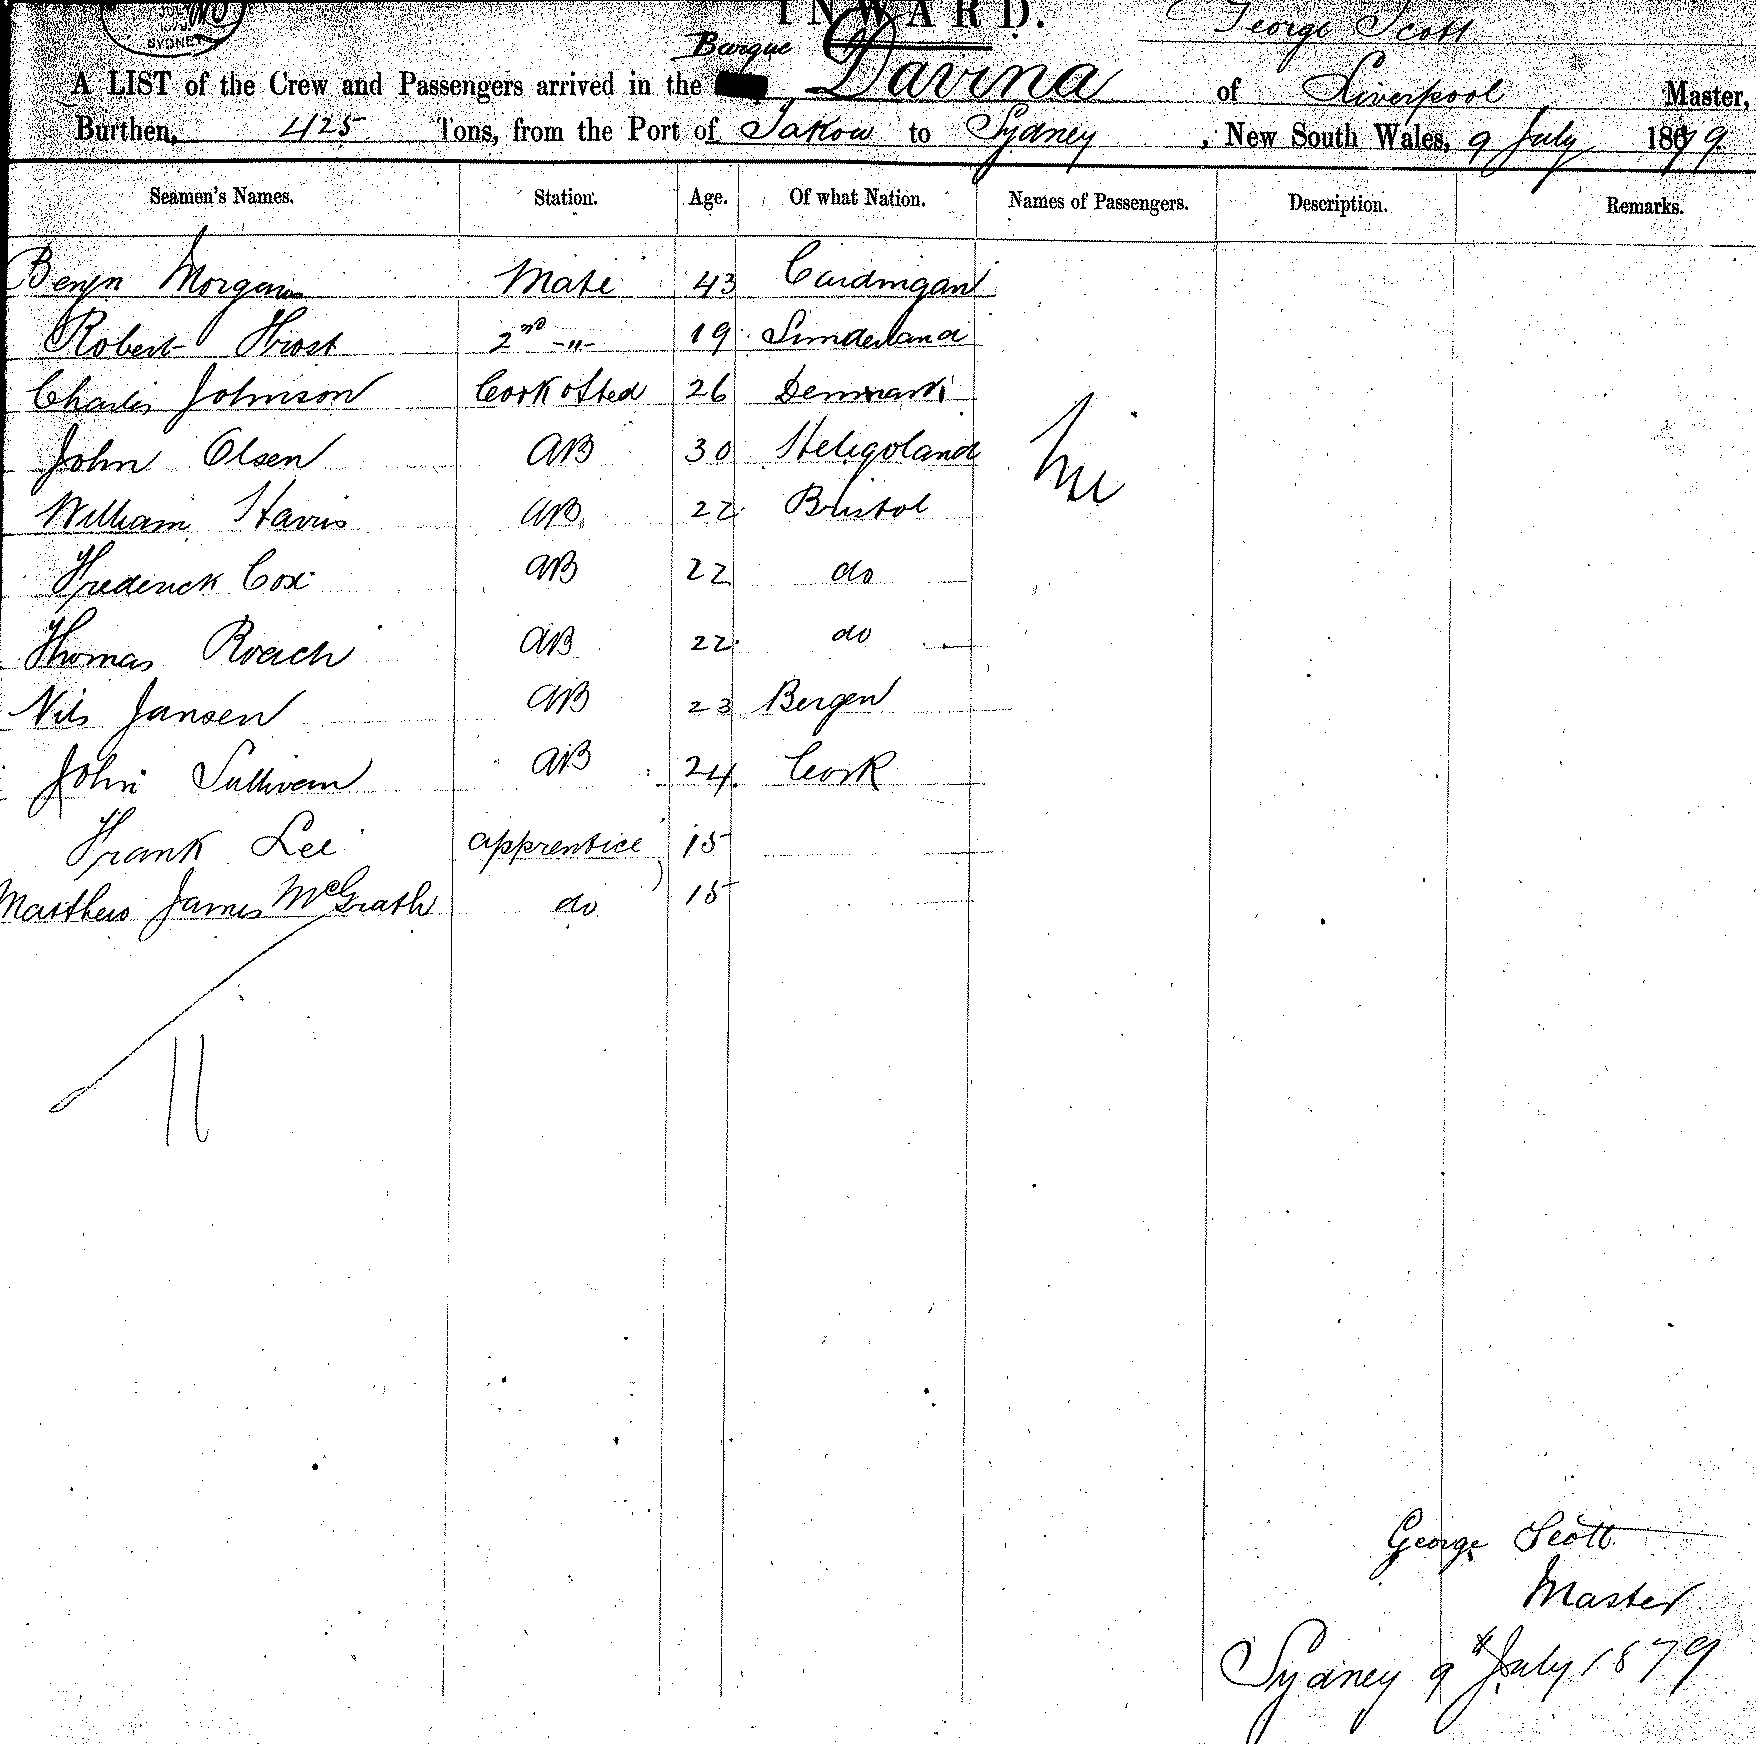 SYDNEY
INWARD.
George Scott
Barque
A LIST of the Crew and Passengers arrived in the Davina of Liverpool Master,
Burthen, 425 Tons, from the Port of Takow to Sydney, New South Wales, 9 July 1879
Seamen's Names. Station. Age. Of what Nation. Names of Passengers. Description. Remarks.
Benjn Morgan Mate 43 Cardingan
Robert Frost 2nd -"- 19 Sunderland
Charles Johnson Cook & Sted 26 Denmark
John Olsen AB 30 Heligoland
Nil
William Harris AB 22 Bristol
Frederick Cox AB 22 do
Thomas Roach AB 22 do
Nils Jansen AB 23 Bergen
John Sullivan AB 24 Cork
Frank Lee apprentice 15
Matthew James McGrath do 15
11
George Scott
Master
Sydney 9th July 1879